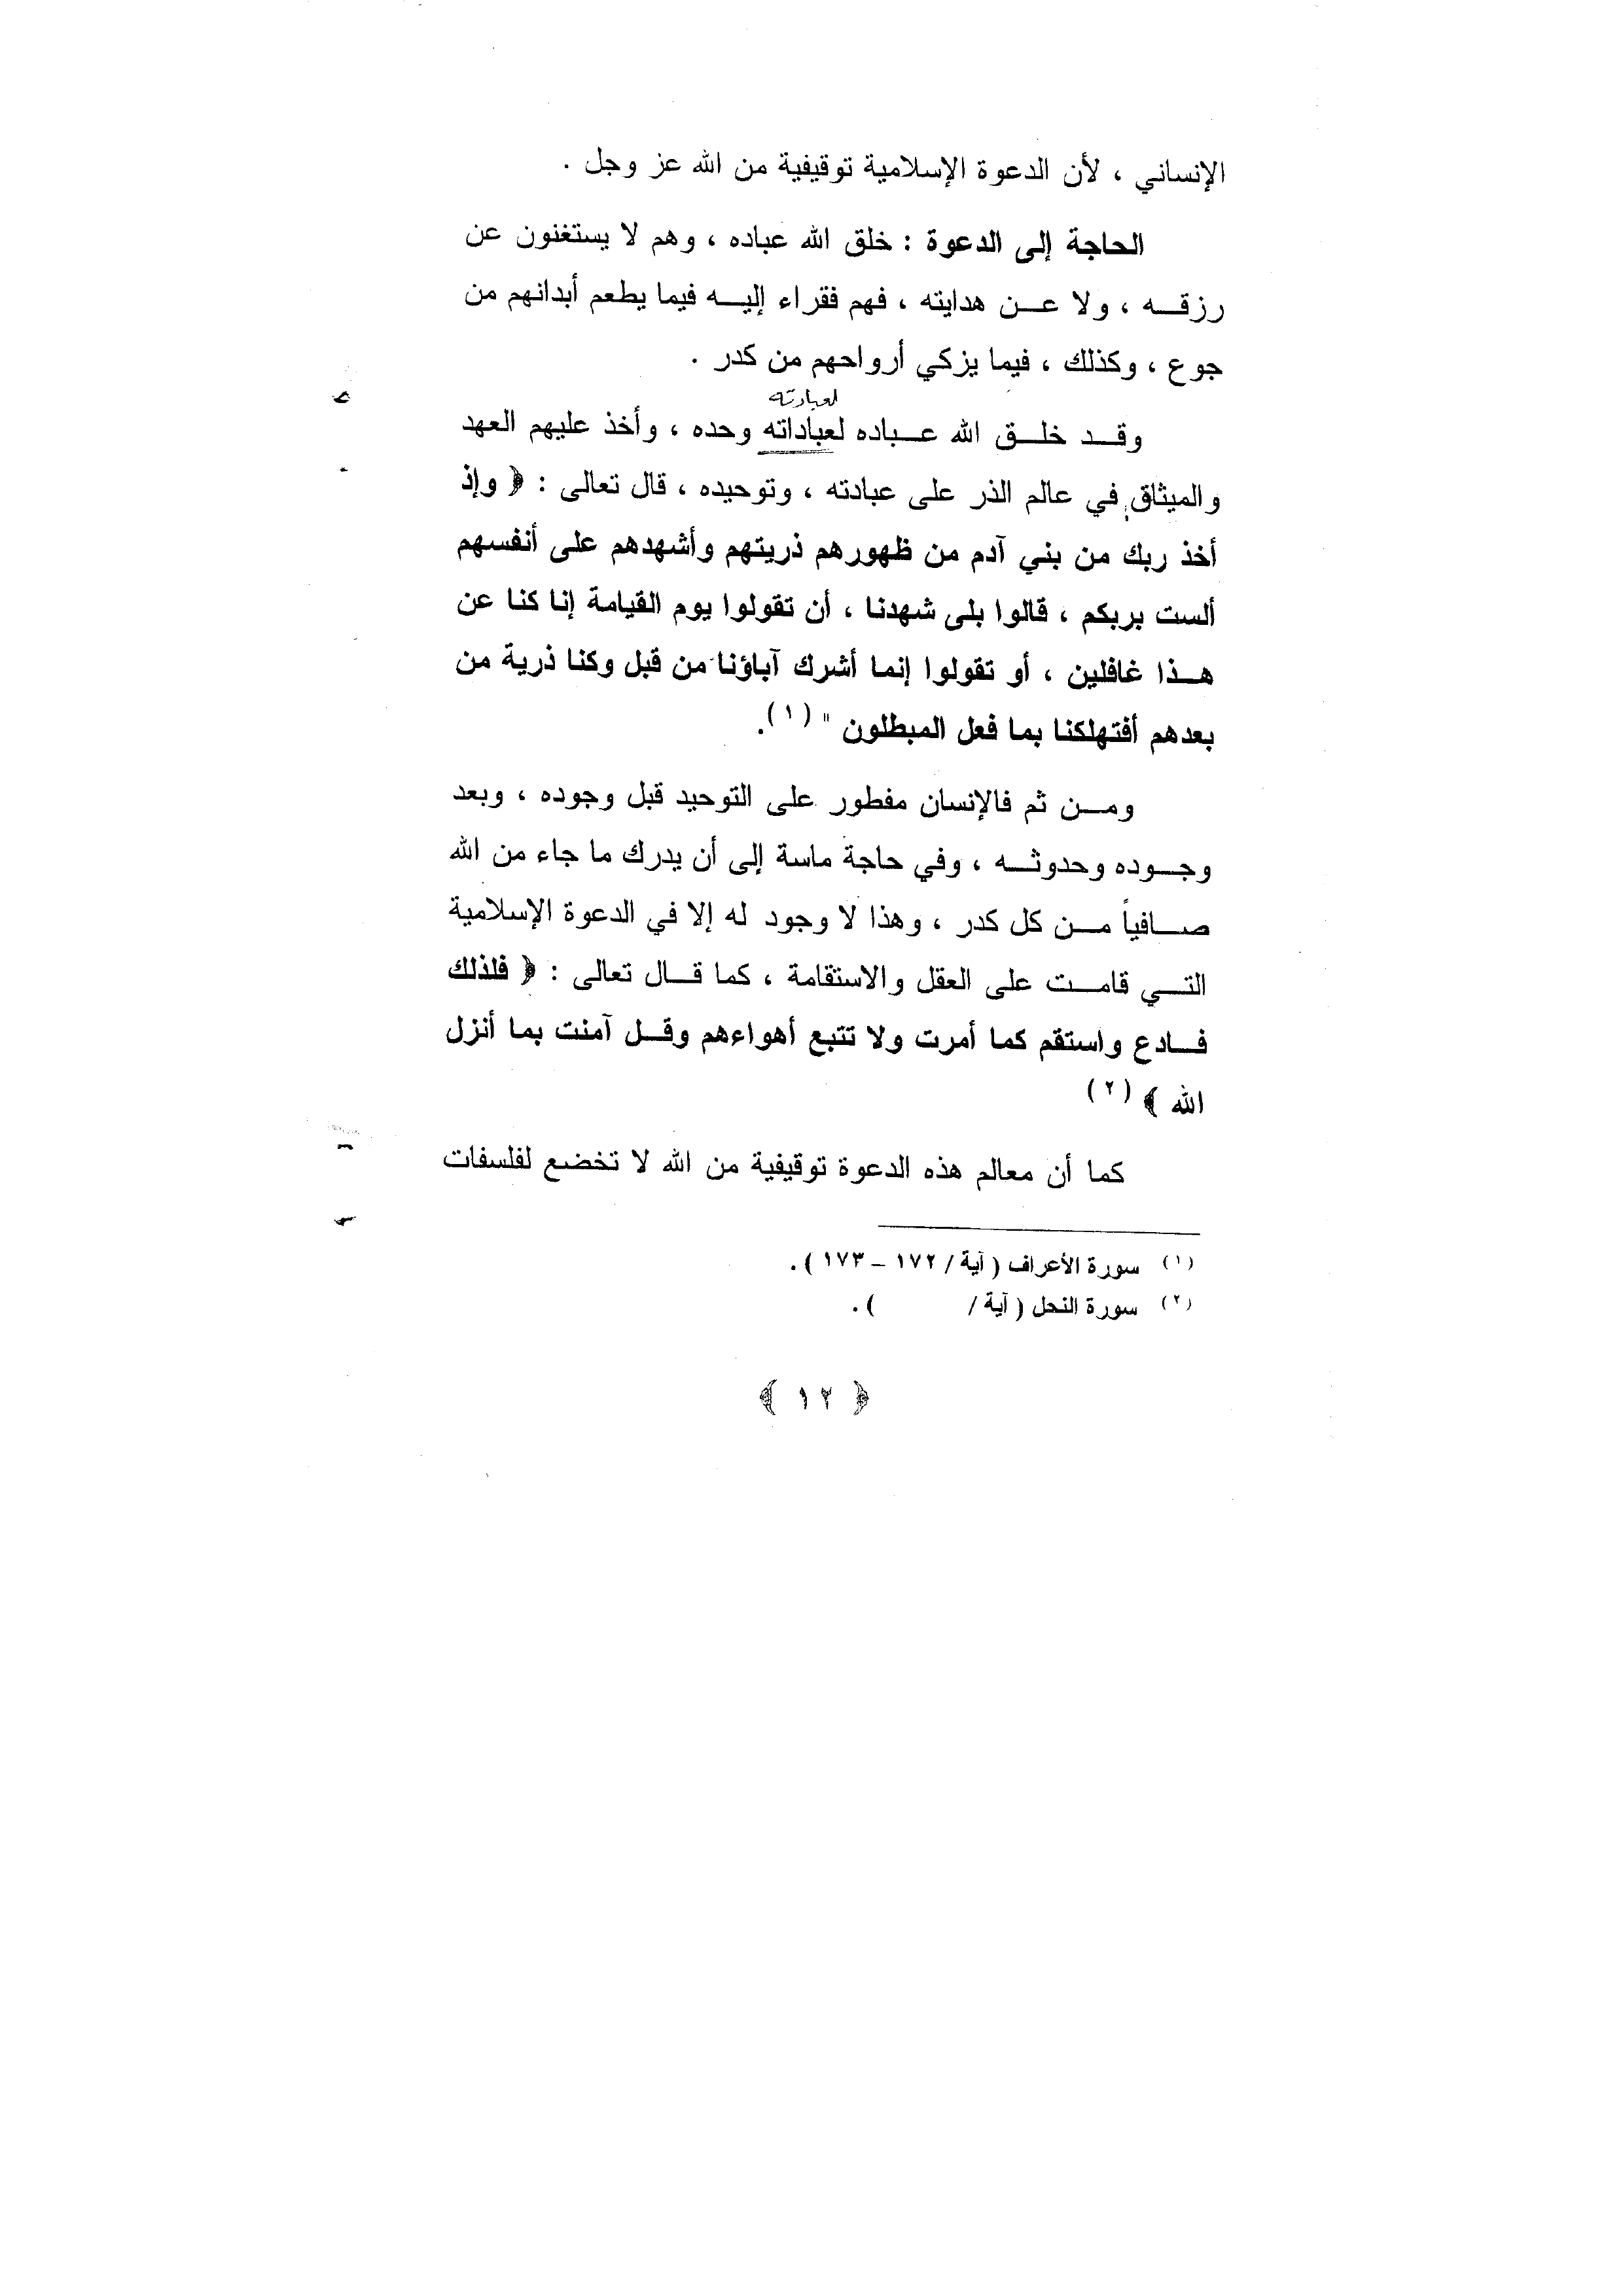 الإنساني ، لأن الدعوة الإسلامية توقيفية من الله عز وجل .
الحاجة إلى الدعوة : خلق الله عباده ، وهم لا يستغنون عن
رزقه ، ولا عن هدايته ، فهم فقراء إليه فيما يطعم أبدانهم من
جوع ، وكذلك ، فيما يزكي أرواحهم من كدر .
لعبادته
وقد خلق الله عباده لعباداته وحده ، وأخذ عليهم العهد
والميثاق في عالم الذر على عبادته ، وتوحيده ، قال تعالى : ﴿ وإذ
أخذ ربك من بني آدم من ظهورهم ذريتهم وأشهدهم على أنفسهم
ألست بربكم ، قالوا بلى شهدنا ، أن تقولوا يوم القيامة إنا كنا عن
هذا غافلين ، أو تقولوا إنما أشرك آباؤنا من قبل وكنا ذرية من
بعدهم أفتهلكنا بما فعل المبطلون " (١).
ومن ثم فالإنسان مفطور على التوحيد قبل وجوده ، وبعد
وجوده وحدوثه ، وفي حاجة ماسة إلى أن يدرك ما جاء من الله
صافياً من كل كدر ، وهذا لا وجود له إلا في الدعوة الإسلامية
التي قامت على العقل والاستقامة ، كما قال تعالى : ﴿ فلذلك
فادع واستقم كما أمرت ولا تتبع أهواءهم وقل آمنت بما أنزل
الله ﴾ (٢)
كما أن معالم هذه الدعوة توقيفية من الله لا تخضع لفلسفات
(١) سورة الأعراف ( آية / ١٧٢ – ١٧٣ ).
(٢) سورة النحل ( آية / ).
﴿ ١٢ ﴾